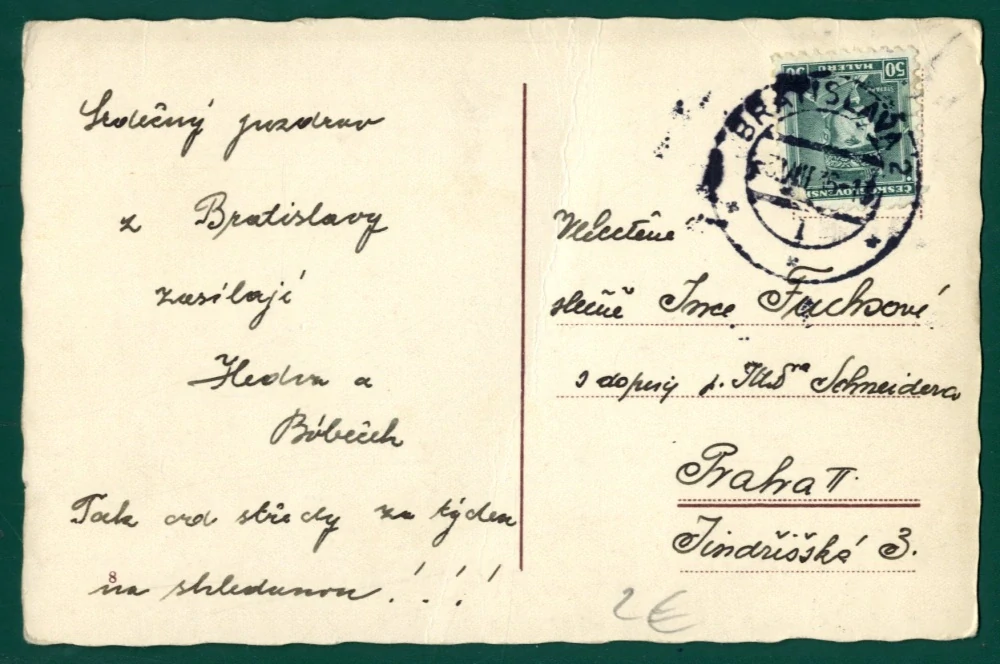 Srdečný pozdrav
z Bratislavy
zasílají
Hedva a
Bóbeček
Tak od středy za týden
na shledanou!!!
8
50 HALÉŘŮ 50
ČESKOSLOVENSK
BRATISLAVA 2
1
Vělectěné
slečně Ince Fuchsové
s dopisy p. Schneidera
Praha II.
Jindřišská 3.
2 €